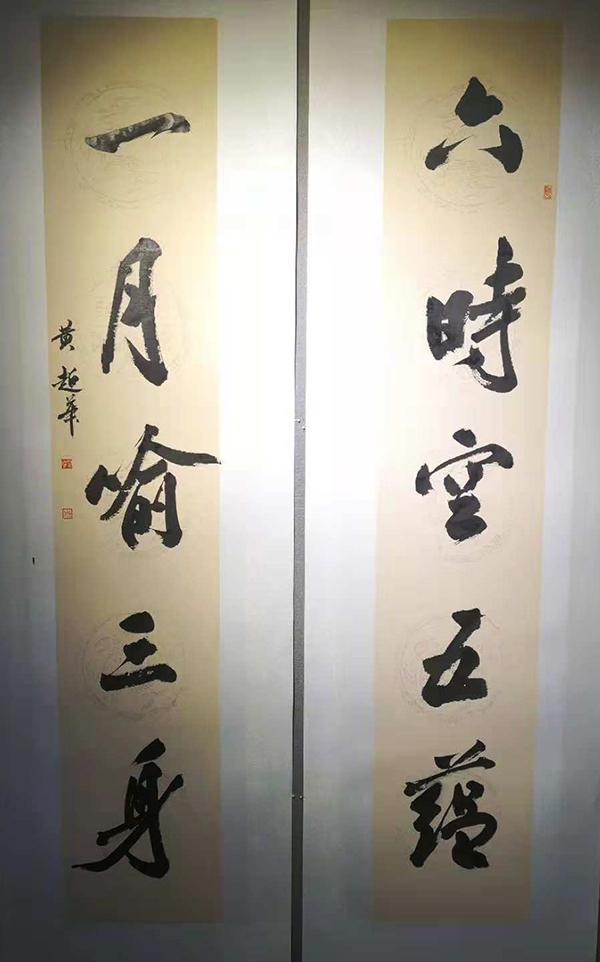 六時空五蘊
一月喻三身
黄超華